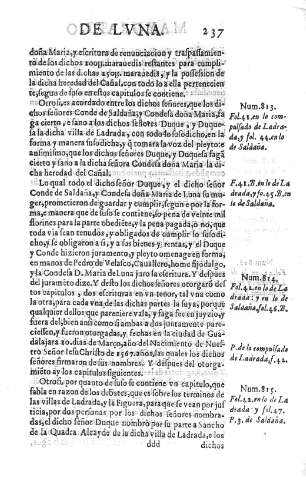 DE LVNA 237
doña Maria, y escritura de renunciacion y traspassamien-
to de los dichos 200y. marauedis restantes para cumpli-
miento de las dichas 250y. marauedis, y la possesion de
la dicha heredad del Cañal, con todo lo a ella pertenecien
te, segun de suso en estos capitulos se contiene.
Otrosi, es acordado entre los dichos señores, que los di-
chos señores Conde de Saldaña, y Condesa doña Maria, fa
ga cierto, e sano a los dichos señores Duque, y Duquesa
la dicha villa de Ladrada, con todo lo susodicho, en la
forma y manera susodicha, q̃ tomara la voz del pleyto: e
ansimismo, que los dichos señores Duque, y Duquesa fagã
cierto y sano a la dicha señora Condesa doña Maria la di-
cha heredad del Cañal.
Lo qual todo el dicho señor Duque, y el dicho señor
Conde de Saldaña, y Condesa doña Maria de Luna su mu-
ger, prometieron de guardar y cumplir, segun e por la for-
ma, e manera que de suso se contiene, so pena de veinte mil
florines para la parte obediẽte, y la pena pagada, o no, que
toda via sean tenudos, y obligados de cumplir lo susodi-
cho, y se obligaron a si, y a sus bienes, y rentas, y el Duque
y Conde hizieron juramento, y pleyto omenage en forma,
en manos de Pedro de Velasco, Cauallero, home fijodalgo,
y la Condesa D. Maria de Luna juro la escritura. Y despues
del juramẽto dize. Y desto los dichos señores otorgarõ des
tos capitulos, dos escrituras en vn tenor, tal vna como
la otra, para cada vna de las dichas partes la suya, porque
qualquier dellos que pareciere vala, y faga fee en juyzio, y
fuera del, bien ansi como si ambas a dos juntamente pare-
ciessen, y fueron otorgadas, y fechas en la ciudad de Gua-
dalajara 20. dias de Março, año del Nacimiento de Nues-
tro Señor Iesu Christo de años, las quales los dichos
señores firmaron de sus nombres. Y despues del otorga-
miẽto ay los capitulos siguientes.
Otrosi, por quanto de suso se contiene vn capitulo, que
fabla en razon de los debates, que es sobre los terminos de
las villas de Ladrada, y la Figuera, para que se vean por juf
ticia, por dos personas por los dichos señores nombra-
das, el dicho señor Duque nombrò por su parte a Sancho
de la Quadra, Alcayde de la dicha villa de Ladrada, e los
ddd dichos
Num. 813.
Fol. 42. en lo com
pulsado de Ladra-
da, y fol. 44. en lo
de Saldaña.
F. 42. B. in lo de La
drada, y fo. 45. B. en
lo de Saldaña.
Num. 814.
Fol. 42. en lo de La
drada: y en lo de
Saldaña, fol. 46. B.
P. de lo compulsado
de Ladrada, f. 42.
Num. 815.
Fol. 42. en lo de La
drada: y fol. 47.
P. 3. de Saldaña.